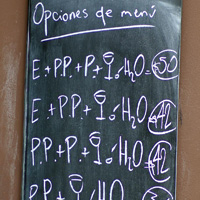 Opciones de menú
E+P.P.+P+I ó H₂O=50
E+P.P+I ó H₂O=42
P.P.+P+I ó H₂O=42
P.P+I ó H₂O